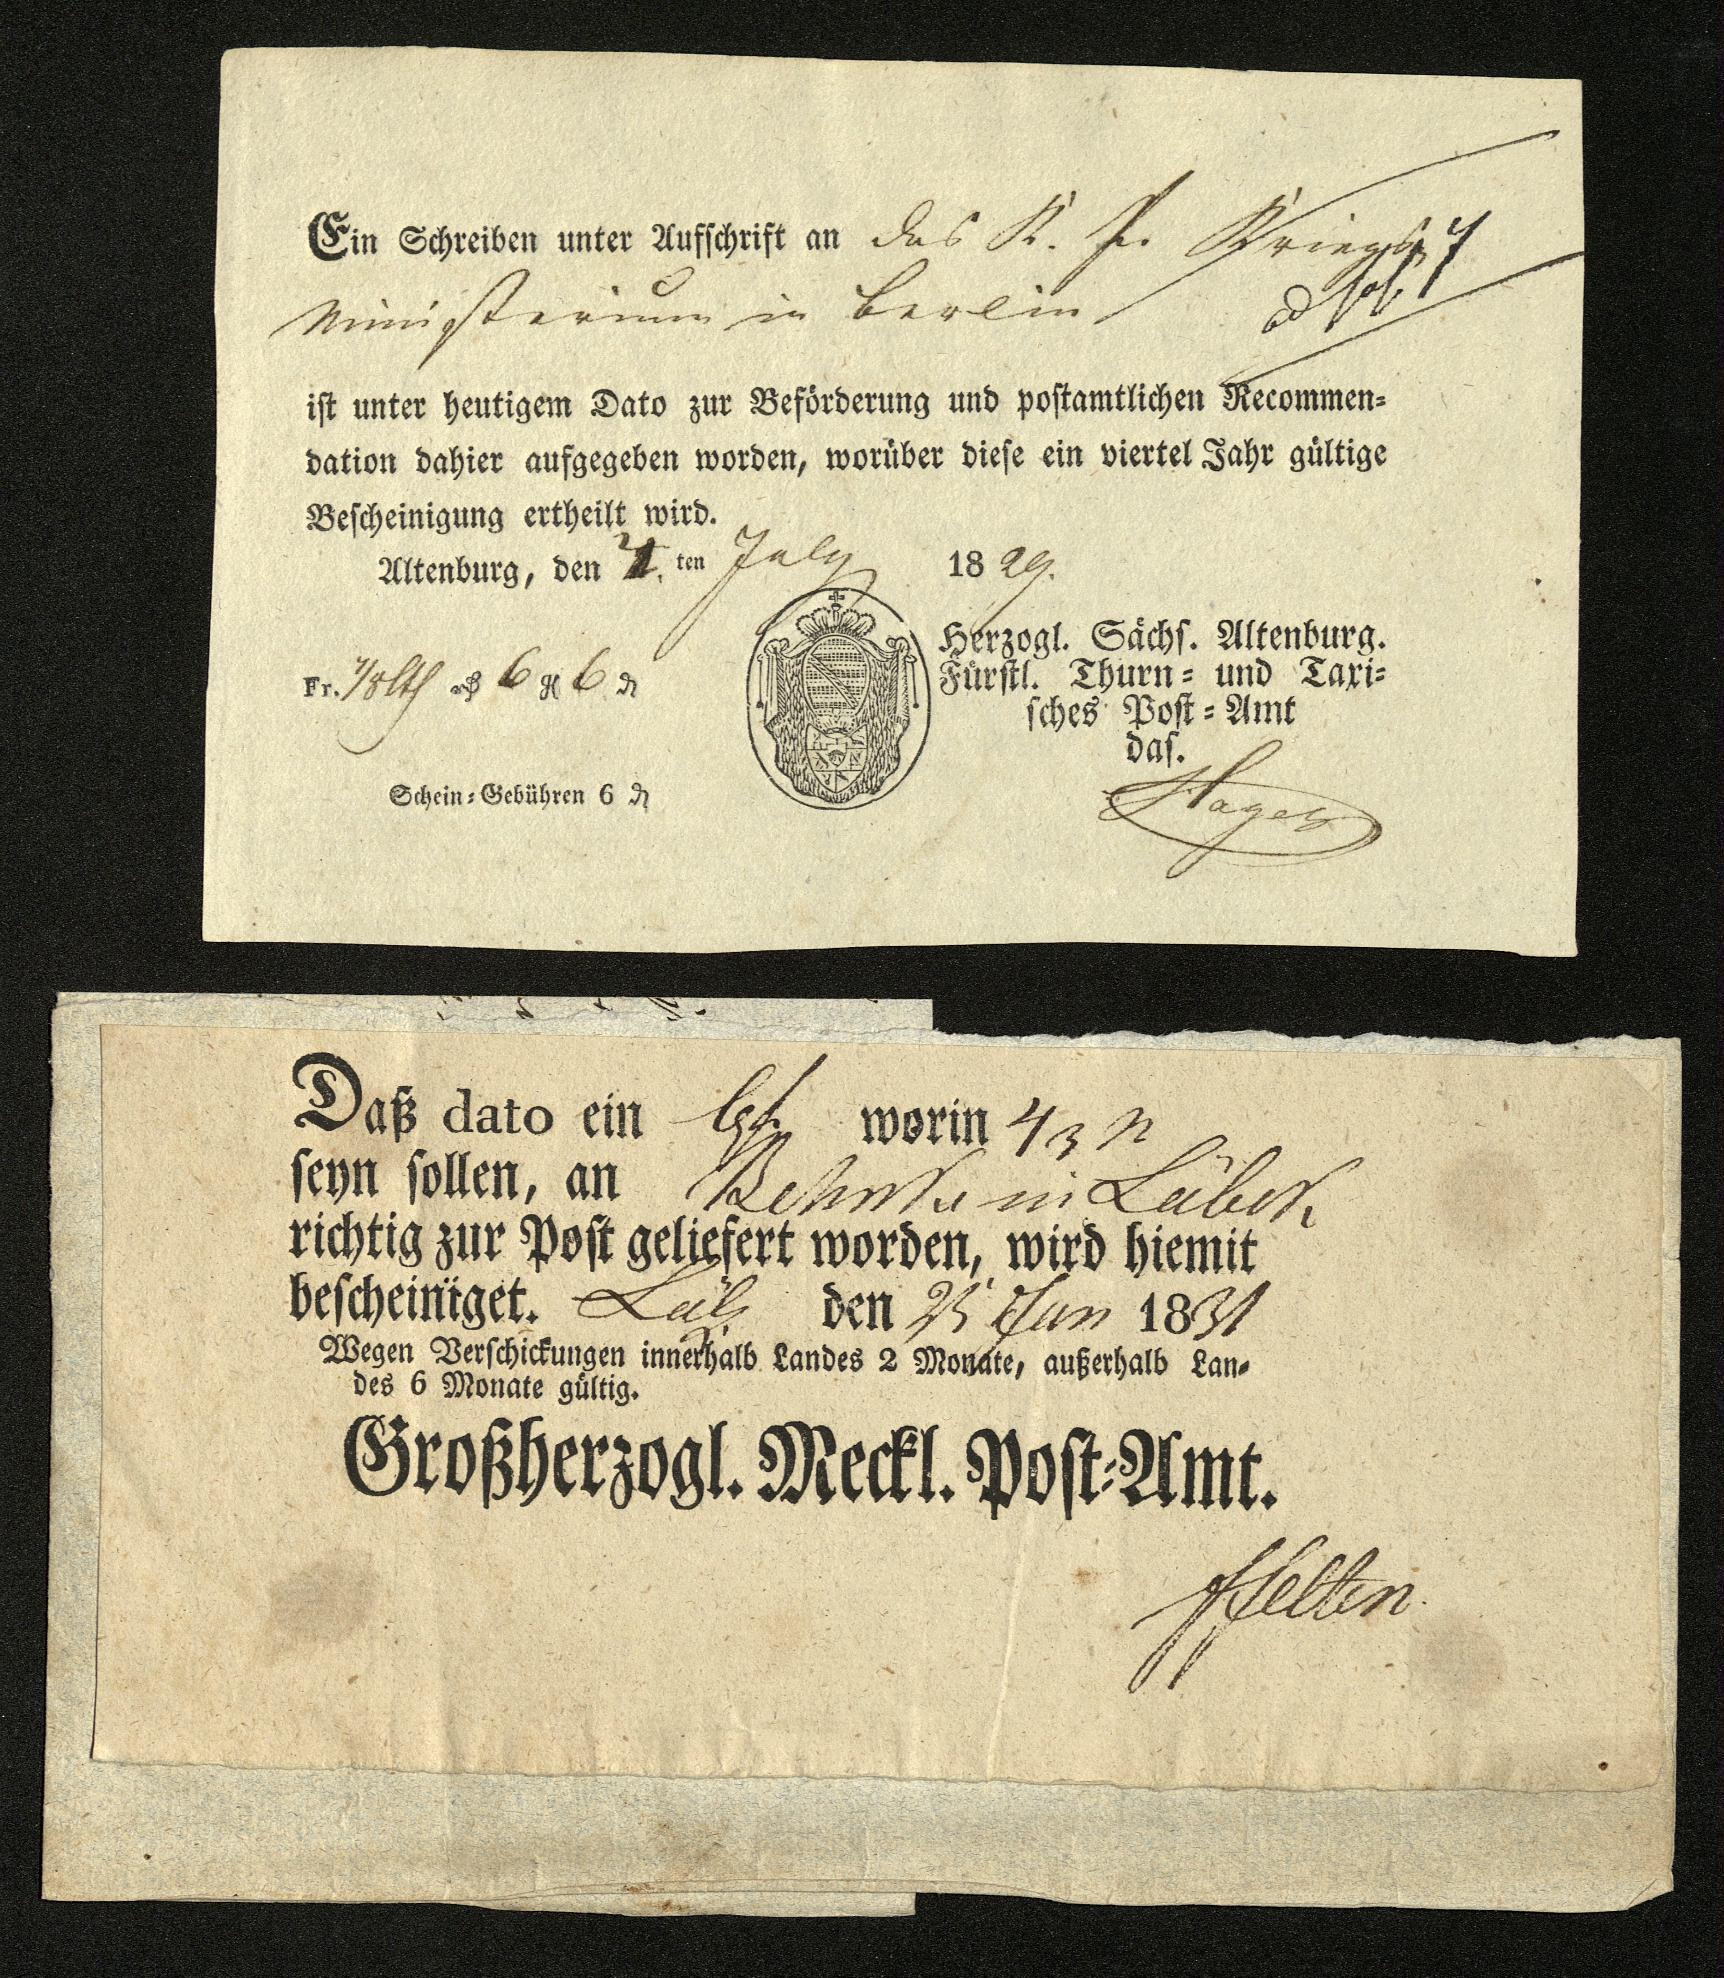 Ein Schreiben unter Aufschrift an das K. Pr. Kriegs
Ministerium in Berlin
ist unter heutigem Dato zur Beförderung und postamtlichen Recommen-
dation dahier aufgegeben worden, worüber diese ein viertel Jahr gültige
Bescheinigung ertheilt wird.
Altenburg, den ten July 1829.
Herzogl. Sächs. Altenburg.
Fürstl. Thurn- und Taxi-
sches Post-Amt
das.
Fr. 6 6
Schein-Gebühren 6
Daß dato ein worin 4
seyn sollen, an in Lübek
richtig zur Post geliefert worden, wird hiemit
bescheiniget. Lübz den 25 Jun 1831
Wegen Verschickungen innerhalb Landes 2 Monate, außerhalb Lan-
des 6 Monate gültig.
Großherzogl. Meckl. Post-Amt.